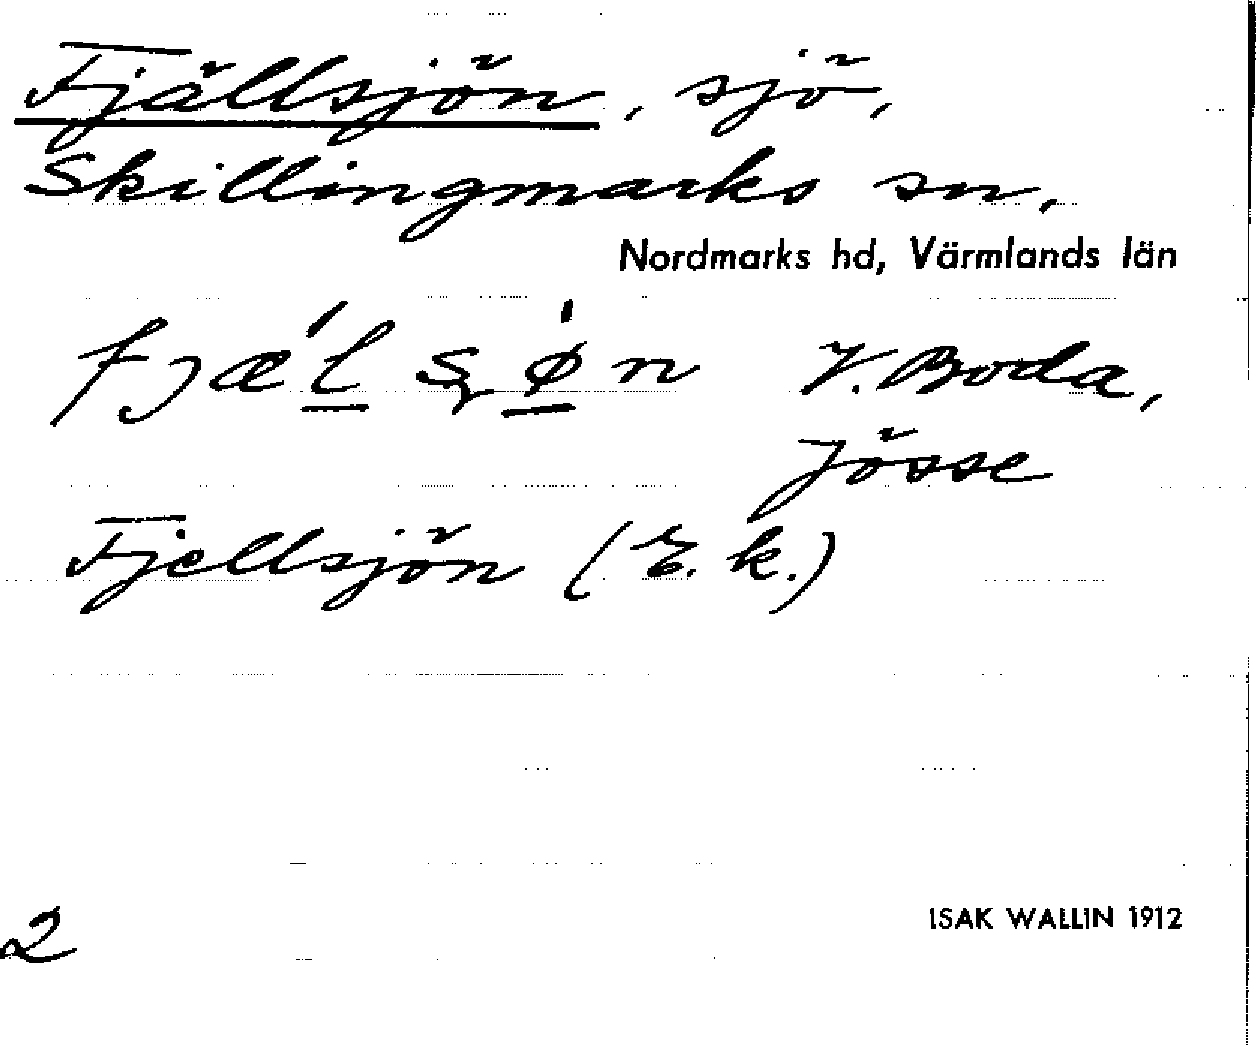 Fjällsjön, sjö,
Skillingmarks sn,
Nordmarks hd, Värmlands län
fjæ´l sø̍n V. Boda,
Jösse
Fjellsjön (E. k.)
2
ISAK WALLIN 1912